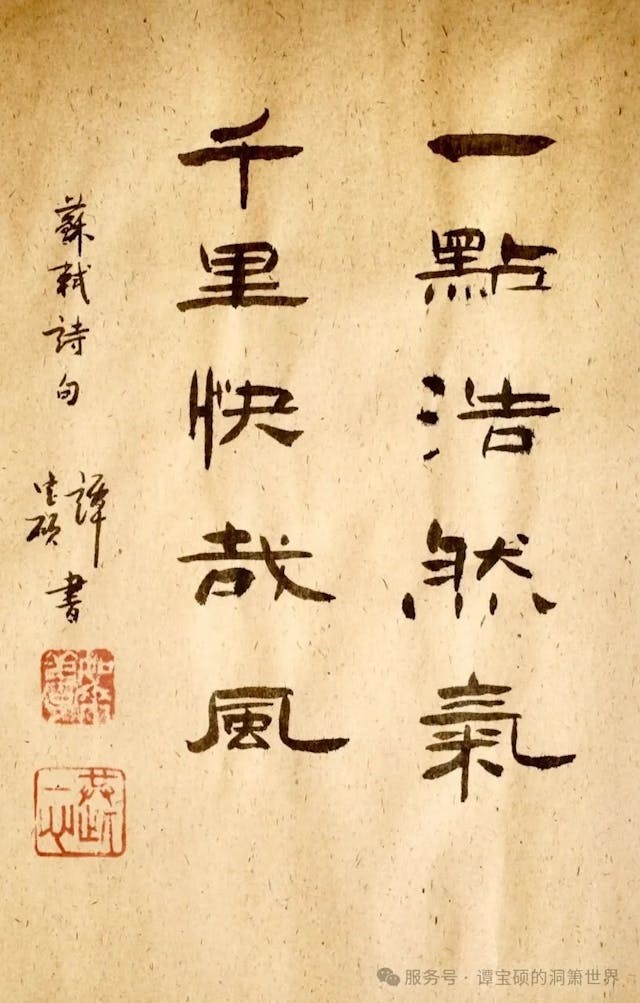 一點浩然氣
千里快哉風
蘇軾詩句
譚寶碩書
服务号 · 谭宝硕的洞箫世界